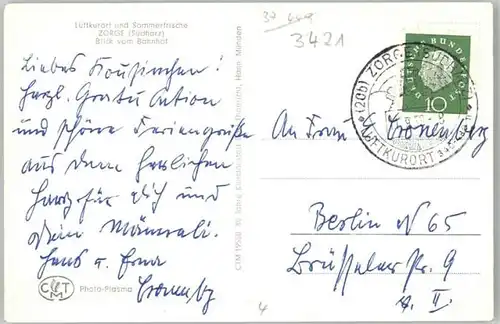 Luftkurort und Sommerfrische
ZORGE (Südharz)
Blick vom Bahnhof
30
3421
Liebes
herzl. Gratulation
und schöne Feriengrüße
aus dem herrlichen
Harz für Dich und
Dein
Hans u. Erna
Cronenberg
CTM
Photo-Plasma
DEUTSCHE BUNDESPOST
10
(20b) ZORGE
LUFTKURORT
An Frau Cronenberg
Berlin N 65
Brüsseler Str. 9
v. II.
4